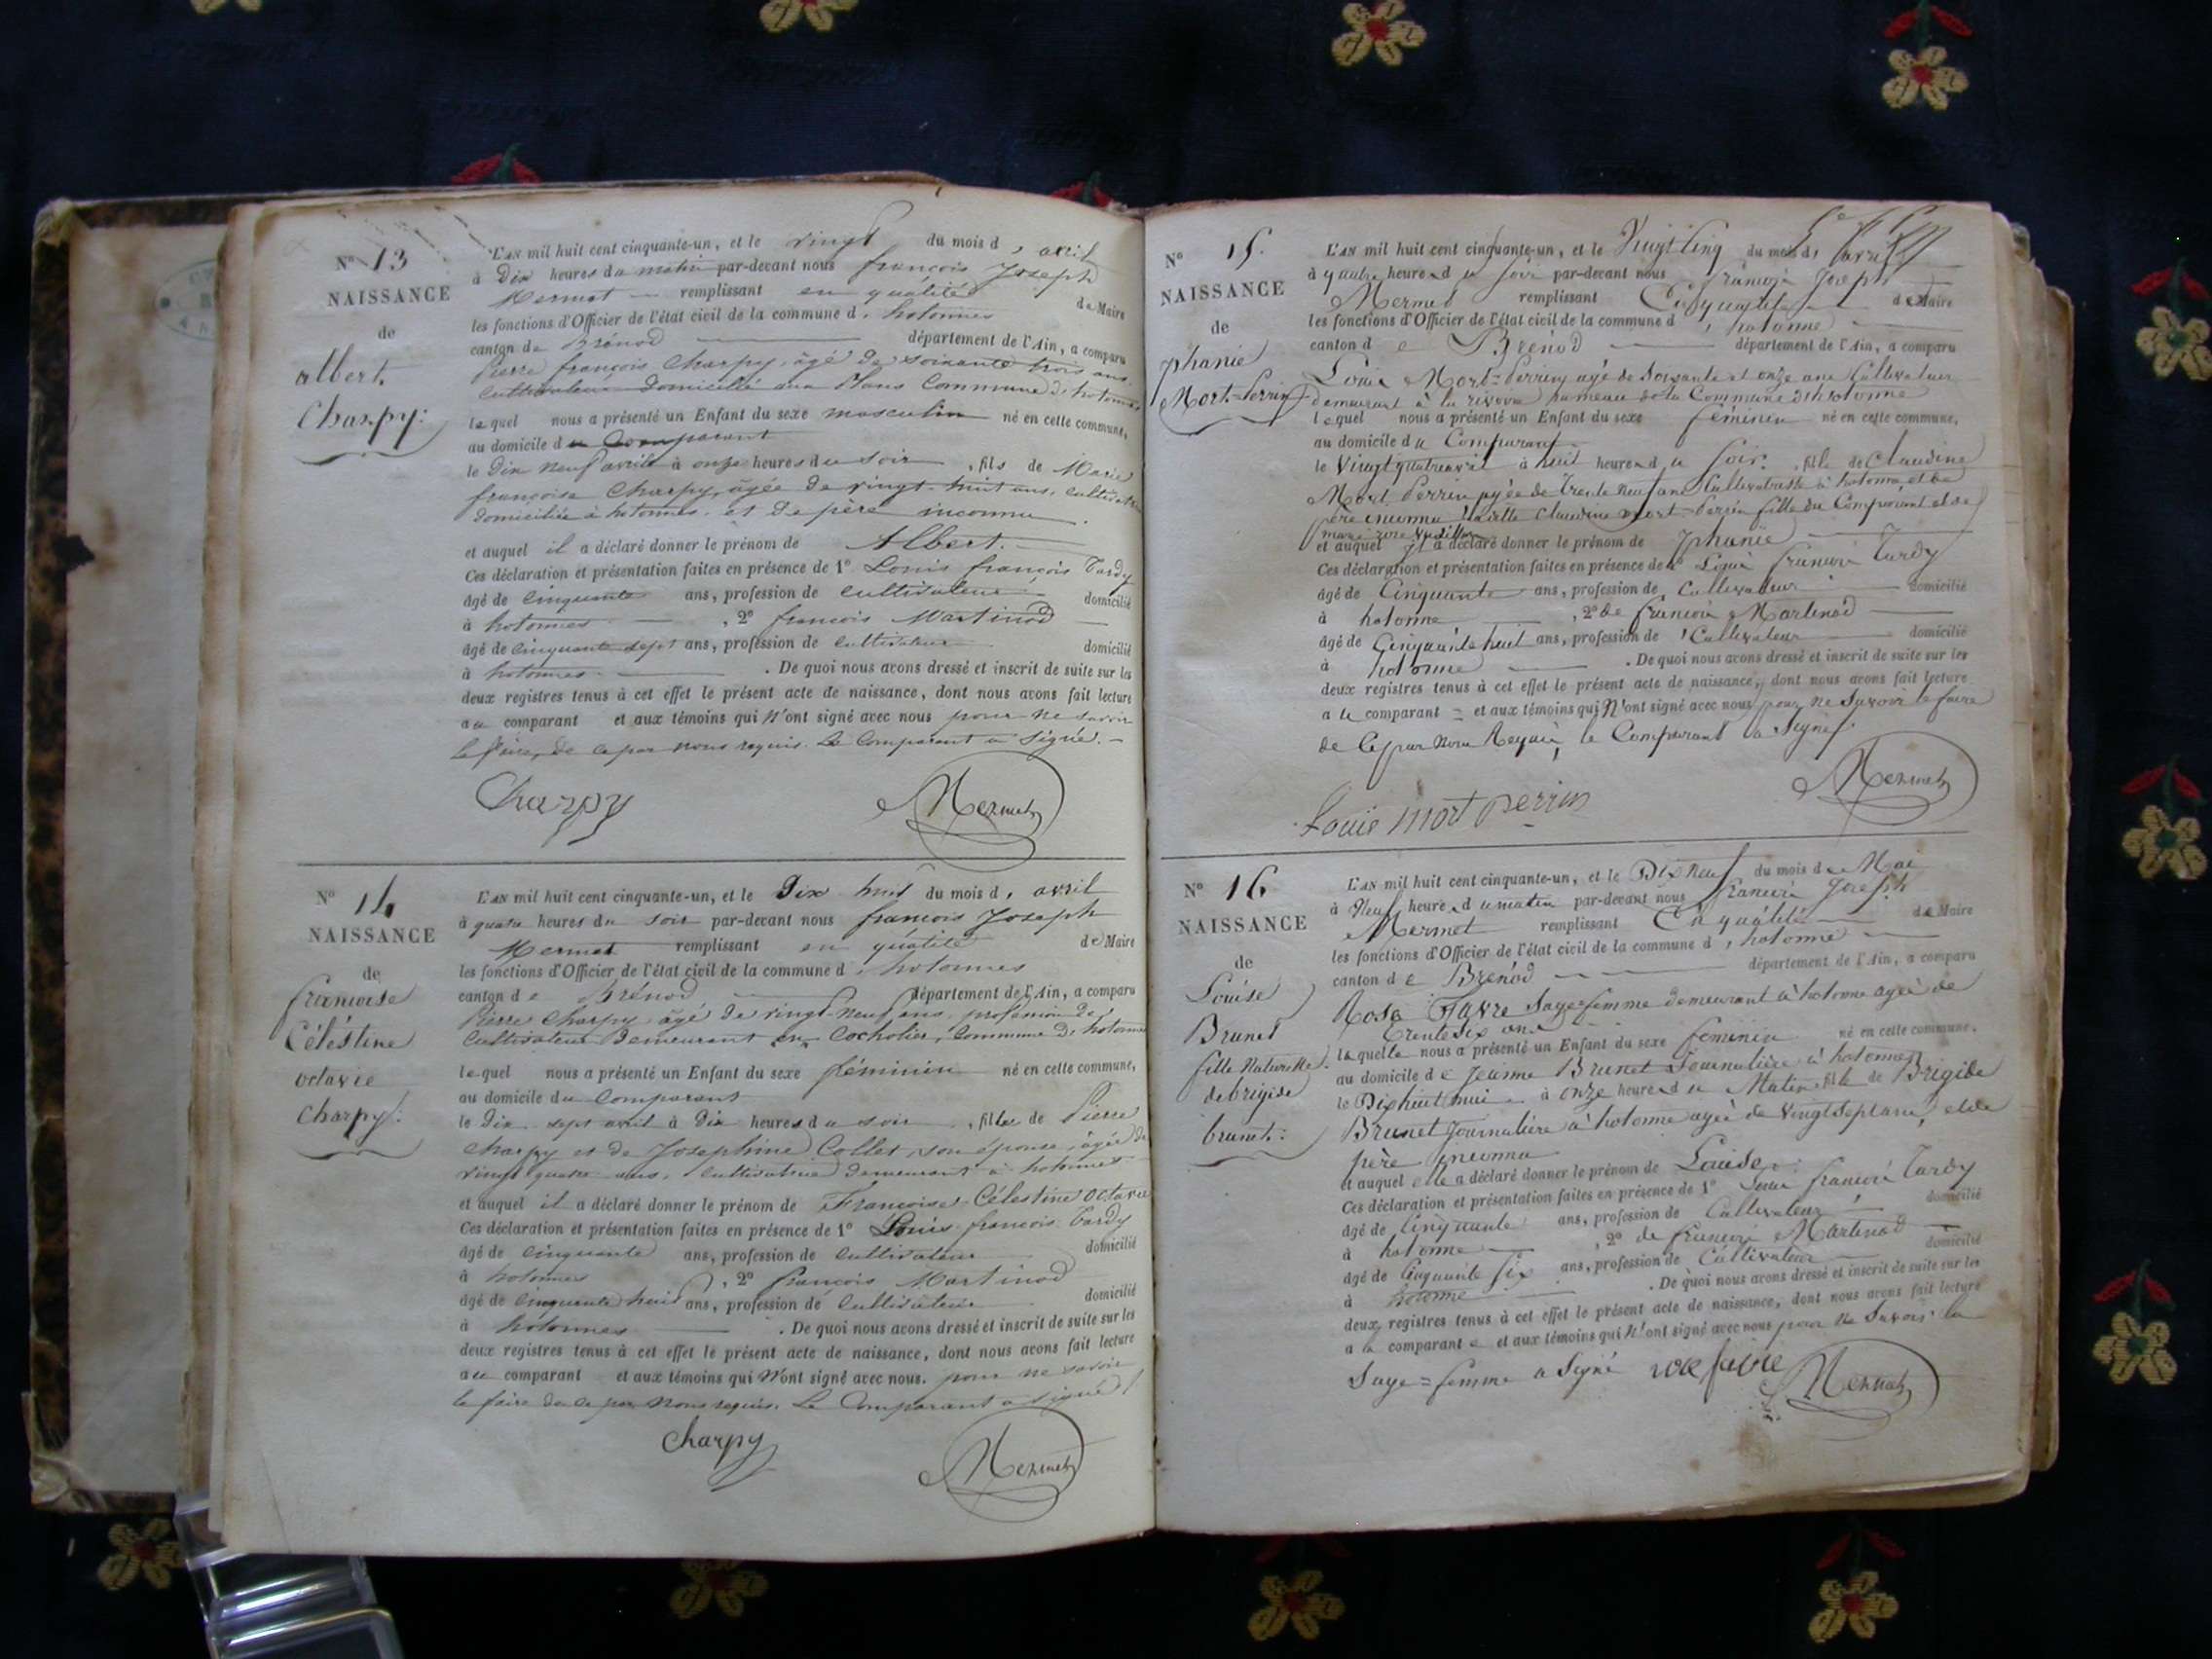 No 13
NAISSANCE
de
Albert
Charpy:
L'AN mil huit cent cinquante-un, et le vingt du mois d' avril
à Dix heures du matin par-devant nous françois Joseph
Mermet remplissant en qualité de Maire
les fonctions d'Officier de l'état civil de la commune d' hotonnes
canton de Brénod département de l'Ain, a comparu
Pierre françois Charpy, âgé de soixante trois ans
Cultivateur domicilié aux Plans Commune d' hotonnes
lequel nous a présenté un Enfant du sexe masculin né en cette commune,
au domicile du Comparant
le Dix neuf avril à onze heures du soir, fils de Marie
françoise Charpy, âgée de vingt-huit ans, cultivatrice
domiciliée à hotonnes. et de père inconnu.
et auquel il a déclaré donner le prénom de Albert.
Ces déclaration et présentation faites en présence de 1o Louis françois Tardy
âgé de cinquante ans, profession de cultivateur domicilié
à hotonnes, 2o françois Martinod
âgé de cinquante sept ans, profession de cultivateur domicilié
à hotonnes. De quoi nous avons dressé et inscrit de suite sur les
deux registres tenus à cet effet le présent acte de naissance, dont nous avons fait lecture
au comparant et aux témoins qui n'ont signé avec nous pour ne savoir
le faire, de ce par nous requis. Le Comparant a signé.
Charpy Mermet
No 14
NAISSANCE
de
françoise
Céléstine
octavie
Charpy:
L'AN mil huit cent cinquante-un, et le Dix huit du mois d' avril
à quatre heures du soir par-devant nous françois Joseph
Mermet remplissant en qualité de Maire
les fonctions d'Officier de l'état civil de la commune d' hotonnes
canton de Brénod département de l'Ain, a comparu
Pierre Charpy, âgé de vingt-neuf ans, profession de
Cultivateur Demeurant en Cocholier, Commune d' hotonnes
lequel nous a présenté un Enfant du sexe féminin né en cette commune,
au domicile du Comparant
le Dix sept avril à Dix heures du soir, fille de Pierre
Charpy et de Josephine Collet, son épouse, âgée de
vingt quatre ans, cultivatrice demeurant à hotonnes
et auquel il a déclaré donner le prénom de Françoise Célestine octavie
Ces déclaration et présentation faites en présence de 1o Louis françois Tardy
âgé de cinquante ans, profession de cultivateur domicilié
à hotonnes, 2o françois Martinod
âgé de cinquante huit ans, profession de cultivateur domicilié
à hotonnes. De quoi nous avons dressé et inscrit de suite sur les
deux registres tenus à cet effet le présent acte de naissance, dont nous avons fait lecture
au comparant et aux témoins qui n'ont signé avec nous. pour ne savoir
le faire de ce par nous requis. Le Comparant a signé
Charpy Mermet
No 15.
NAISSANCE
de
phanie
Mort=Perrin
L'AN mil huit cent cinquante-un, et le Vingt Cinq du mois d' avril
à quatre heure du soir par-devant nous françois Joseph
Mermet remplissant En qualité de Maire
les fonctions d'Officier de l'état civil de la commune d' hotonne
canton de Brénod département de l'Ain, a comparu
Louis Mort=Perrin agé de Soixante et onze ans Cultivateur
demeurant à la rivoire hameau de la Commune d'hotonne
lequel nous a présenté un Enfant du sexe féminin né en cette commune,
au domicile du Comparant
le Vingt quatre avril à huit heure du Soir, fille de Claudine
Mort Perrin agée de trente neuf ans Cultivatrice à hotonne et de
père inconnu laditte Claudine Mort-Perrin fille du Comparant et de
et auquel il a déclaré donner le prénom de phanie
Ces déclaration et présentation faites en présence de 1o Louis françois Tardy
âgé de Cinquante ans, profession de Cultivateur domicilié
à hotonne, 2o de françois Martinod
âgé de Cinquante huit ans, profession de Cultivateur domicilié
à hotonne. De quoi nous avons dressé et inscrit de suite sur les
deux registres tenus à cet effet le présent acte de naissance, dont nous avons fait lecture
a le comparant = et aux témoins qui N'ont signé avec nous pour ne Savoir le faire
de Ce par Nous Requis, le Comparant a Signé
Louis mort perrin Mermet
No 16
NAISSANCE
de
Louise
Brunet
fille Naturelle
de brigide
brunet:
L'AN mil huit cent cinquante-un, et le Dix Neuf du mois de Mai
à Neuf heure du matin par-devant nous françois Joseph
Mermet remplissant En qualité de Maire
les fonctions d'Officier de l'état civil de la commune d' hotonne
canton de Brenod département de l'Ain, a comparu
Rosa Favre Sage=femme demeurant à hotonne agée de
trente Six ans
laquelle nous a présenté un Enfant du sexe féminin né en cette commune,
au domicile de Jeanne Brunet Journalière à hotonne
le Dix huit mai à onze heure du Matin fille de Brigide
Brunet Journalière à hotonne agée de Vingt Sept ans, et de
père inconnu
et auquel elle a déclaré donner le prénom de Louise
Ces déclaration et présentation faites en présence de 1o Louis françois Tardy
âgé de Cinquante ans, profession de Cultivateur domicilié
à hotonne, 2o de françois Martinod
âgé de Cinquante Six ans, profession de Cultivateur domicilié
à hotonne. De quoi nous avons dressé et inscrit de suite sur les
deux registres tenus à cet effet le présent acte de naissance, dont nous avons fait lecture
a la comparante et aux témoins qui N'ont signé avec nous pour Ne Savoir la
Sage=femme a Signé rose favre Mermet